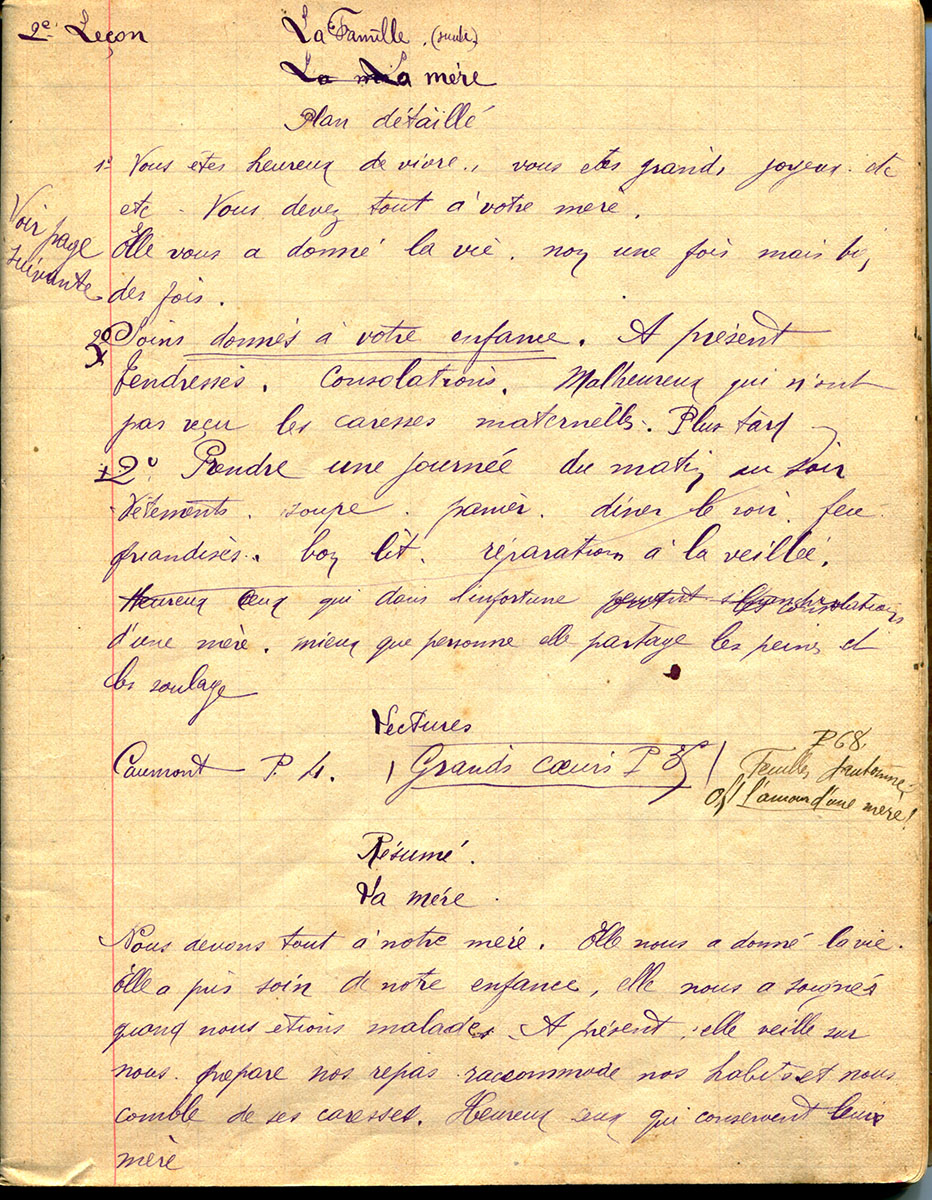 2e Leçon La Famille. (suite)
La mère
Plan détaillé
1° Vous êtes heureux de vivre, vous etes grands, joyeux. etc
etc. Vous devez tout à votre mère.
Voir page suivante
Elle vous a donné la vie. non une fois mais bi,
des fois.
2° Soins donnés à votre enfance. A présent
Tendresses. Consolations. Malheureux qui n'ont
pas reçu les caresses maternelles. Plus tard
2° Prendre une journée du matin au soir
Vêtements. soupe. panier. diner le soir. feu
friandises. bon lit. réparations à la veillée.
Heureux ceux qui dans l'infortune consolations
d'une mère. mieux que personne elle partage les peines et
les soulage
Lectures
Caumont P. 4. Grands cœurs P
P 68.
Feuilles d'automne
Oh! l'amour d'une mère!
Résumé.
La mère.
Nous devons tout à notre mère. Elle nous a donné la vie.
Elle a pris soin de notre enfance, elle nous a soignés
quand nous étions malades. A présent, elle veille sur
nous. prépare nos repas. raccommode nos habits et nous
comble de ses caresses. Heureux ceux qui conservent leurs
mère